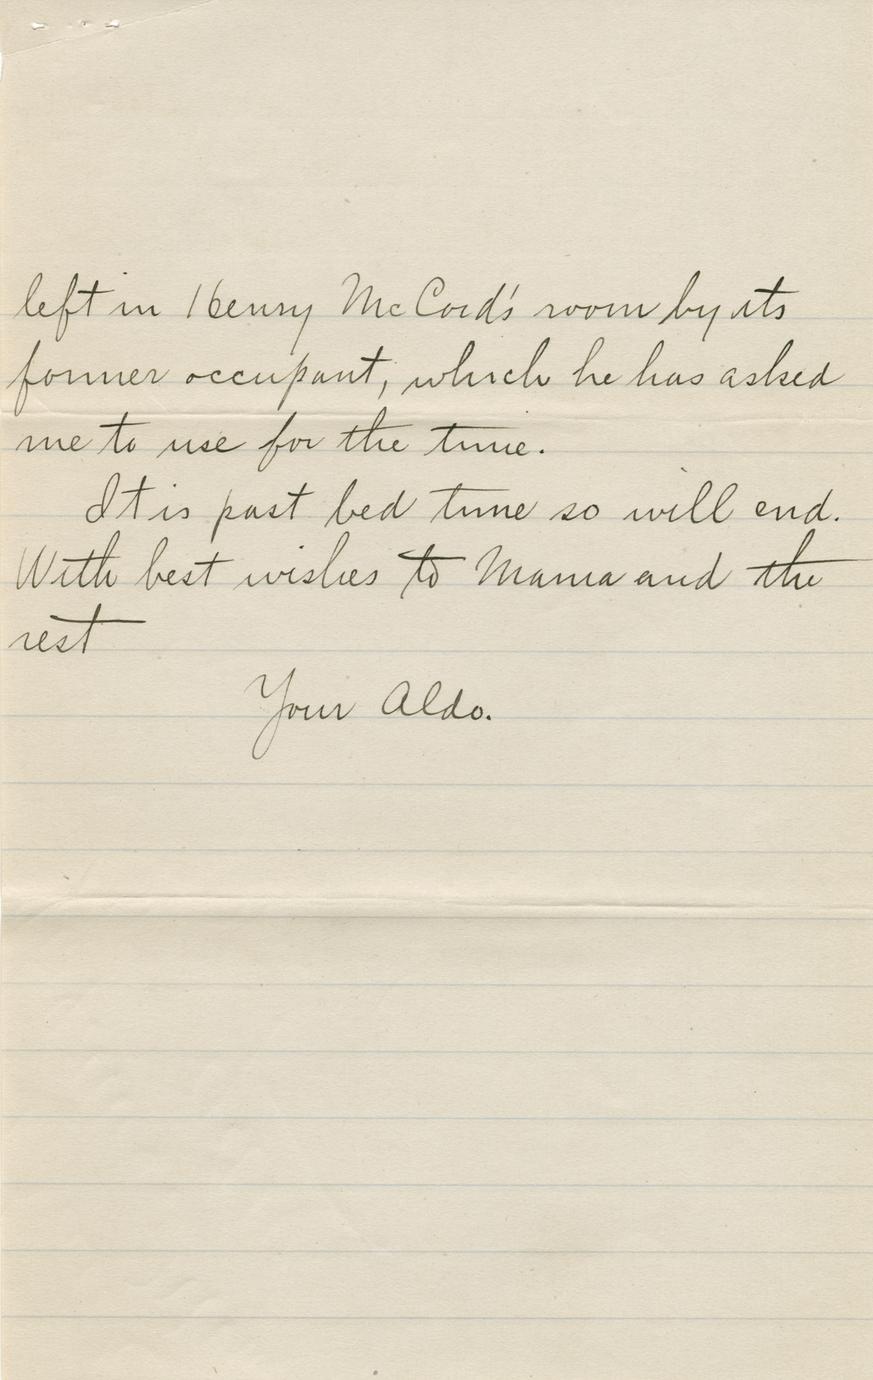 left in Henry McCord's room by its
former occupant, which he has asked
me to use for the time.
It is past bed time so will end.
With best wishes to Mama and the
rest
Your Aldo.